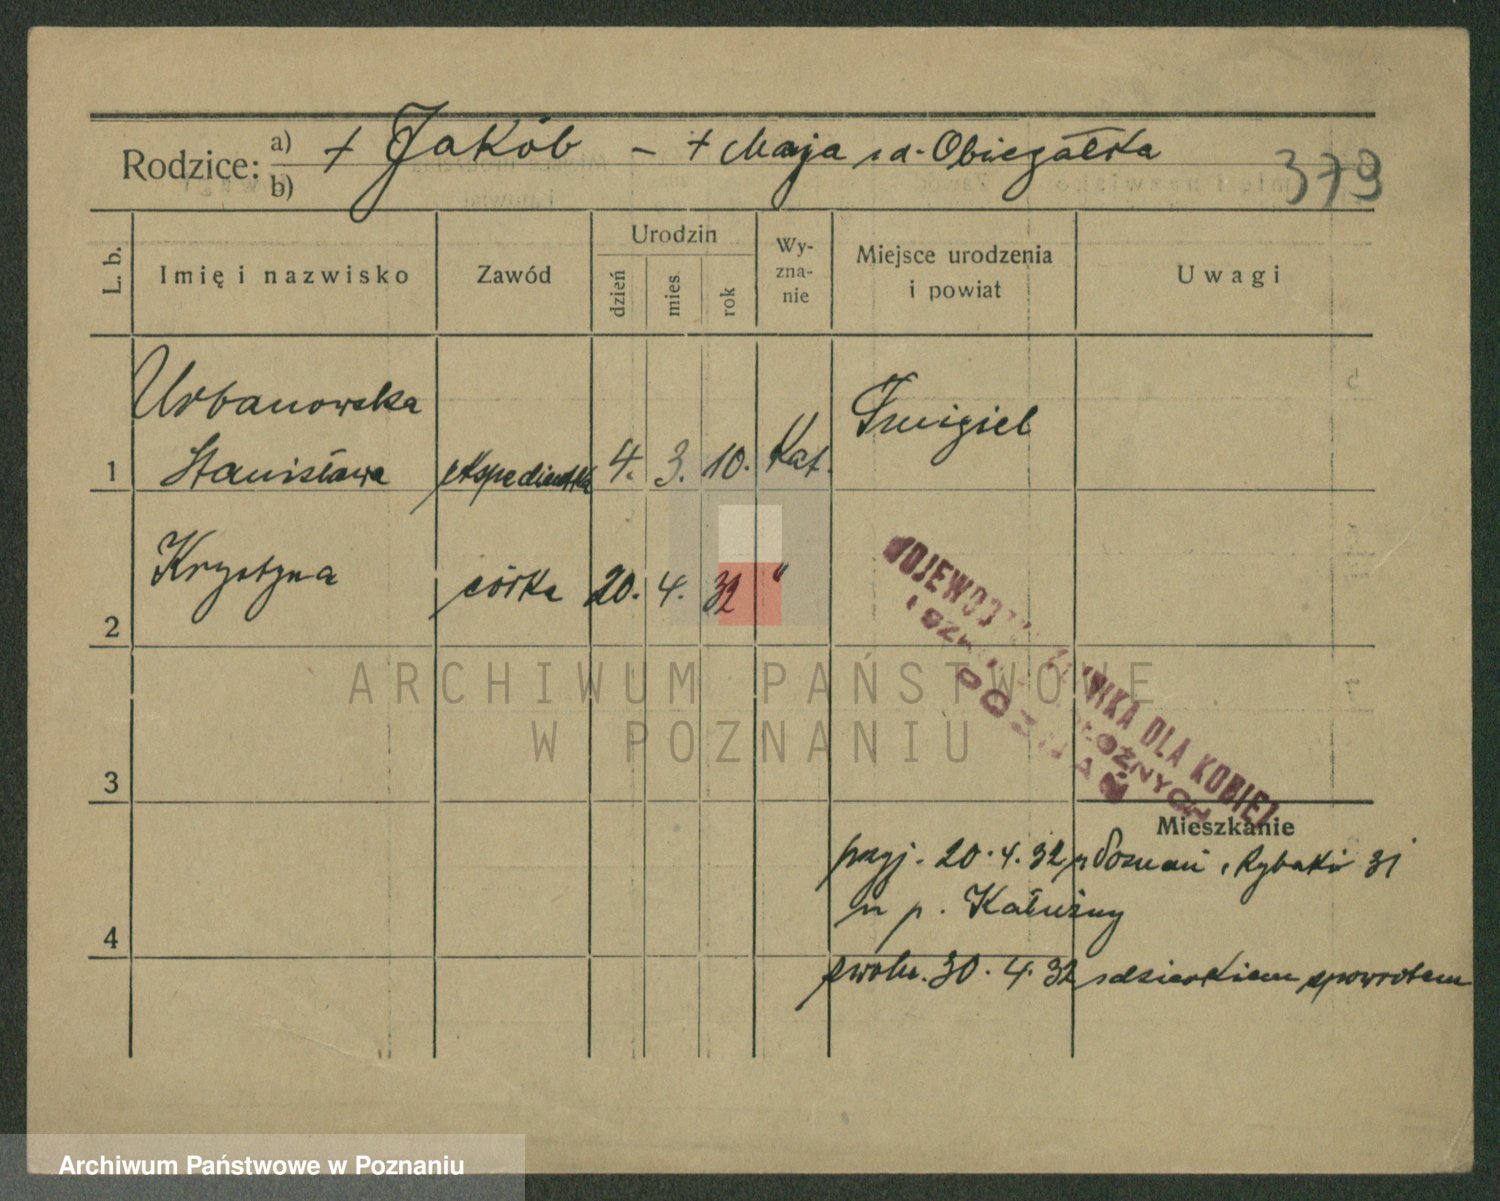 Rodzice: a) + Jakób – + Maja z d. Obiegałska
b)
379
L. b. Imię i nazwisko Zawód Urodzin dzień mies. rok Wyznanie Miejsce urodzenia i powiat Uwagi
Urbanowska Śmigiel
1 Stanisława ekspedientka 4. 3. 10. Kat.
Krystyna córka 20. 4. 32 "
2
WOJEWÓDZKA KLINIKA DLA KOBIET
I SZKOŁA POŁOŻNYCH
POZNAŃ
3
Mieszkanie
przyj. 20. 4. 32 z Poznań, Rybaki 31
4 u p. Kałużny
zwoln. 30. 4. 32 z dzieckiem spowrotem
ARCHIWUM PAŃSTWOWE
W POZNANIU
Archiwum Państwowe w Poznaniu